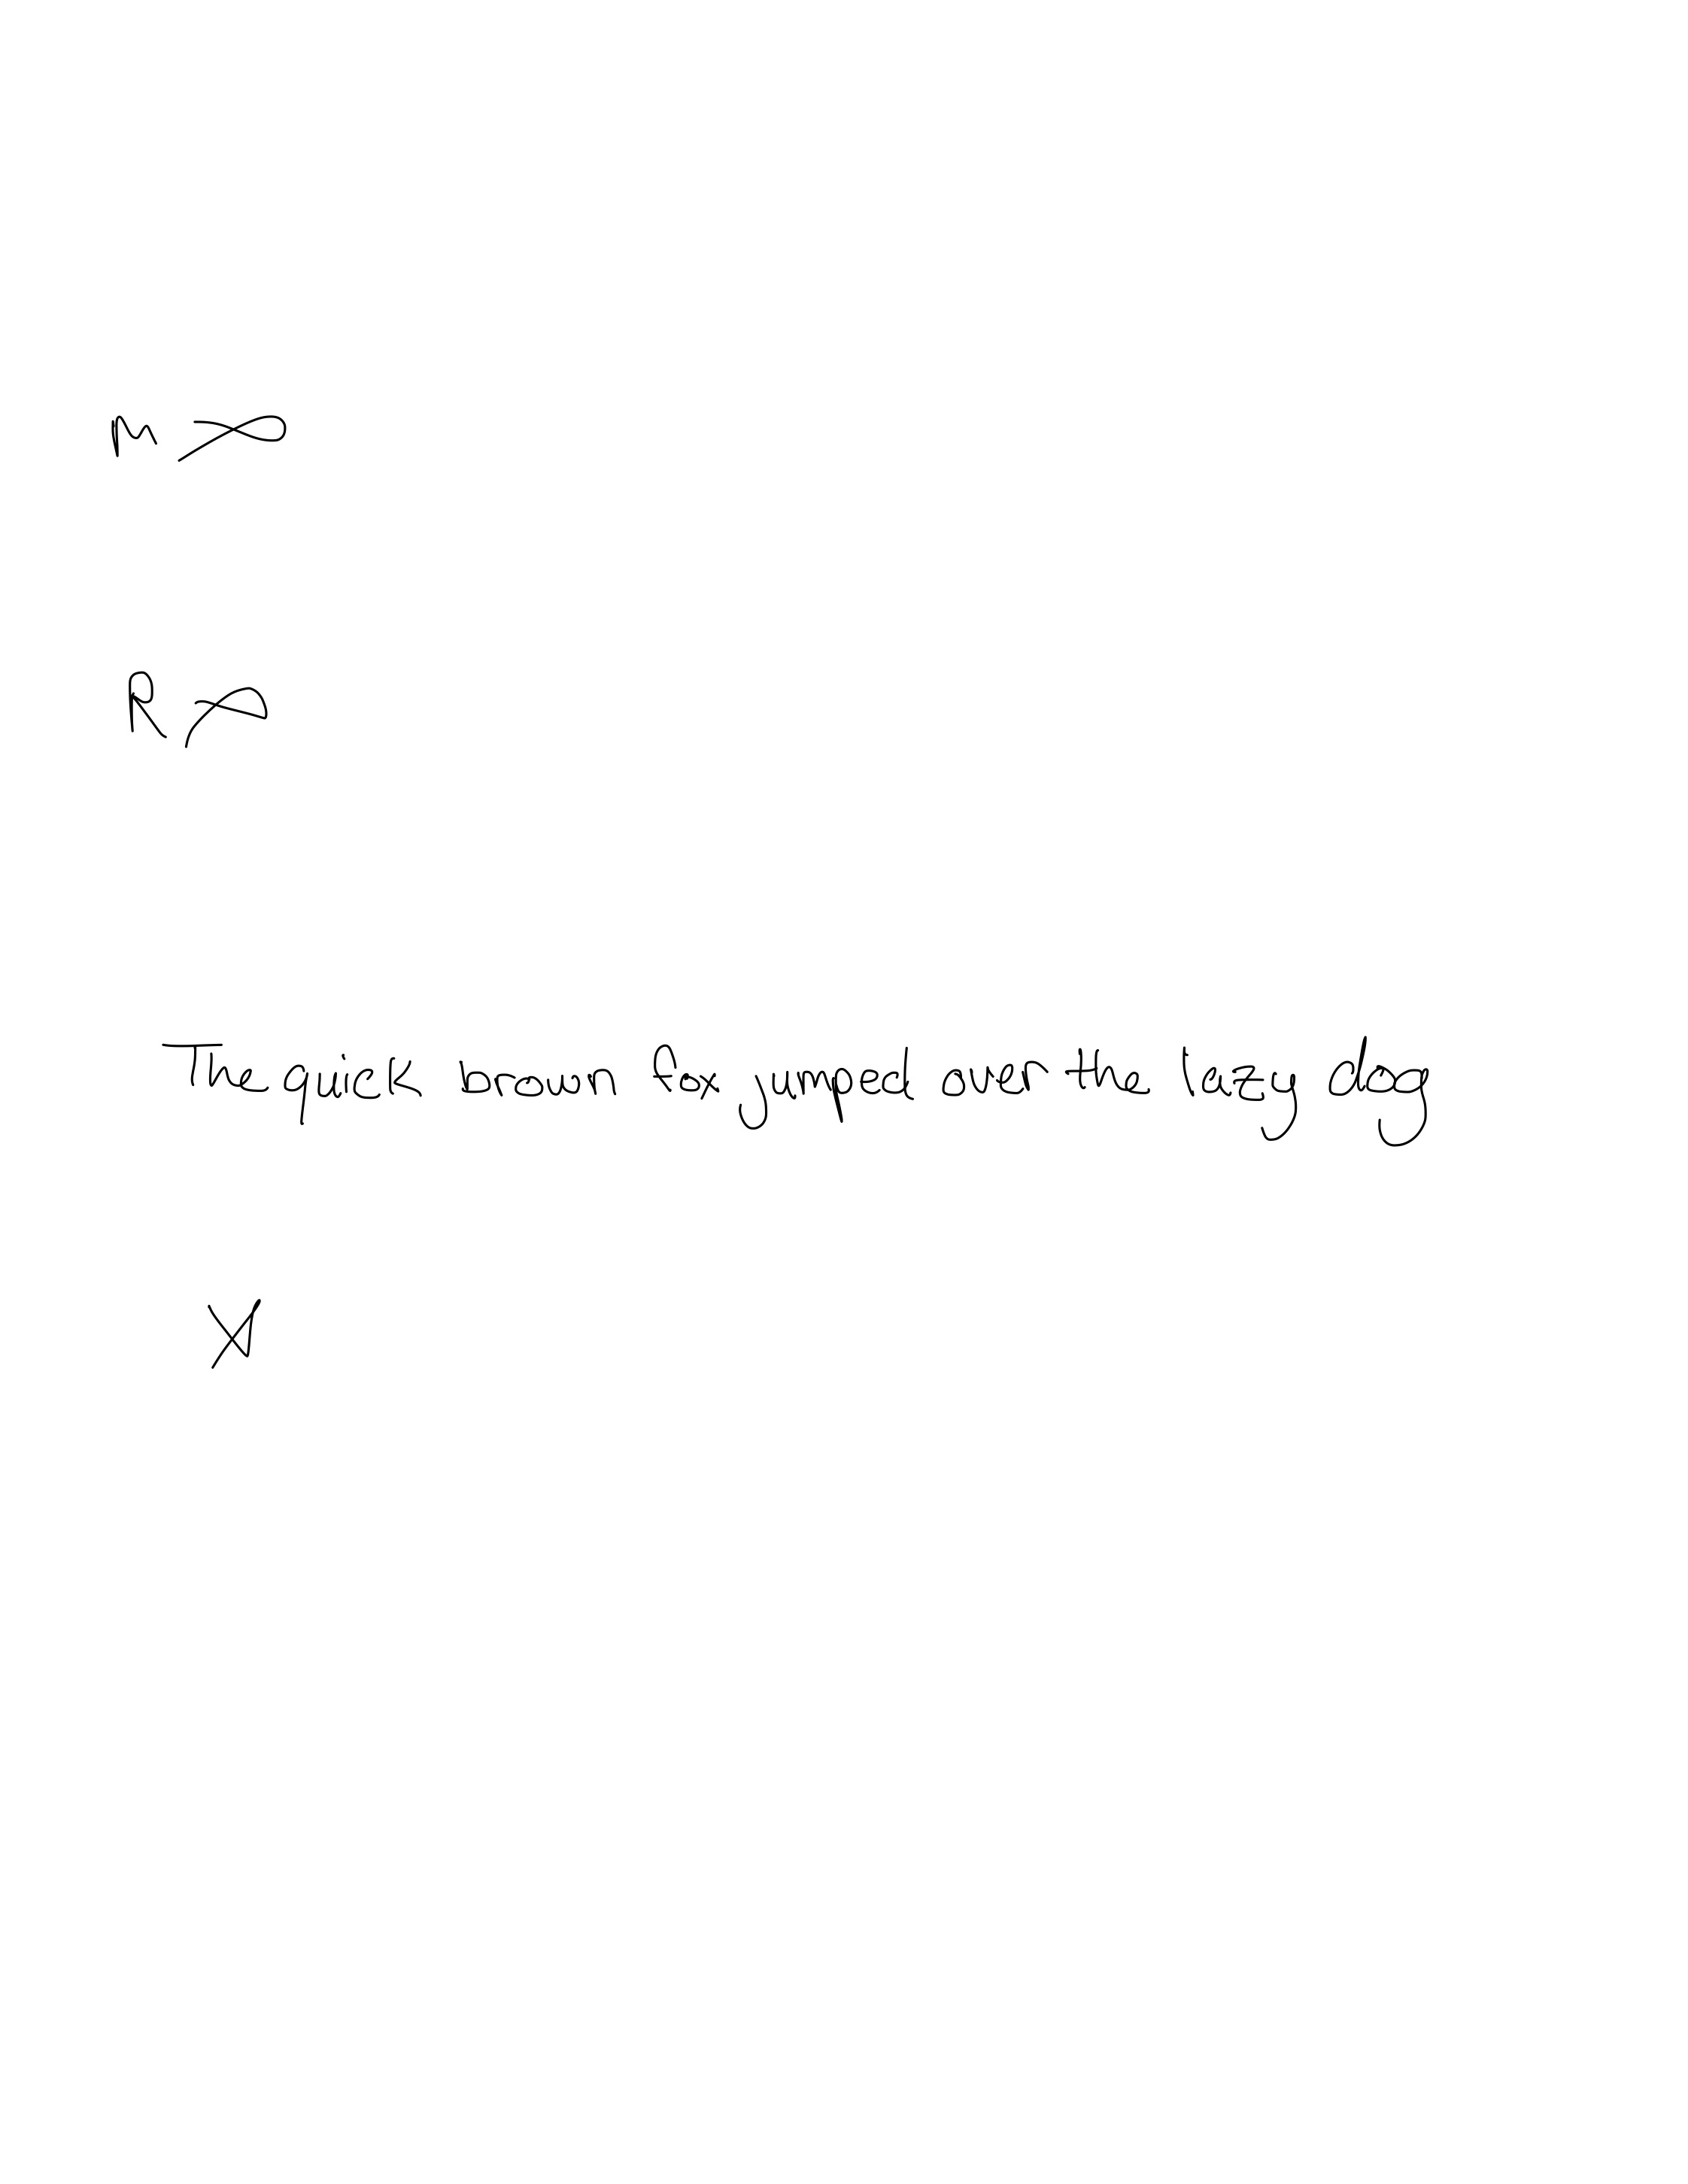 M
R
The quick brown fox jumped over the lazy dog